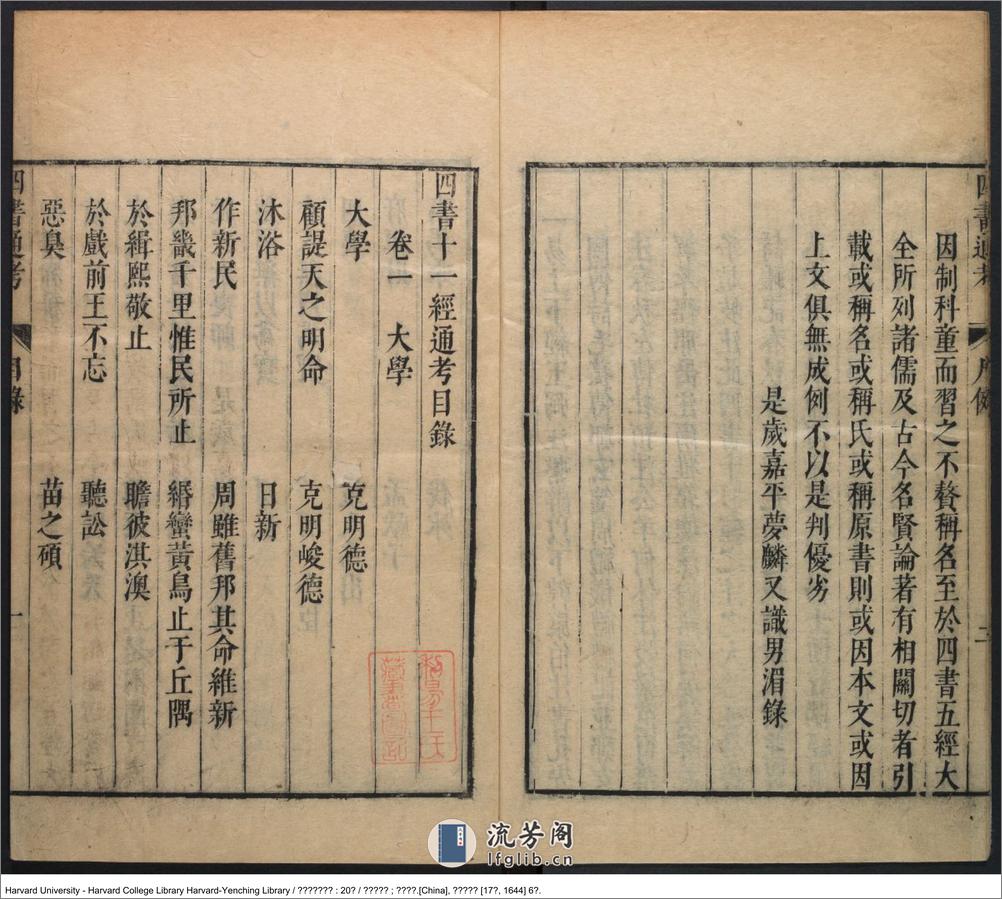 四書通考
序例
二
因制科童而習之不贅稱名至於四書五經大
全所列諸儒及古今名賢論著有相關切者引
載或稱名或稱氏或稱原書則或因本文或因
上文俱無成例不以是判優劣
是歲嘉平夢麟又識男湄錄
四書十一經通考目錄
卷一 大學
大學 克明德
顧諟天之明命 克明峻德
沐浴 日新
作新民 周雖舊邦其命維新
邦畿千里惟民所止 緡蠻黃鳥止于丘隅
於緝熙敬止 瞻彼淇澳
於戲前王不忘 聽訟
惡臭 苗之碩
四書通考
目錄
一
流芳阁
lfglib.cn
Harvard University - Harvard College Library Harvard-Yenching Library / ??????? : 20? / ????? ; ????.[China], ????? [17?, 1644] 6?.